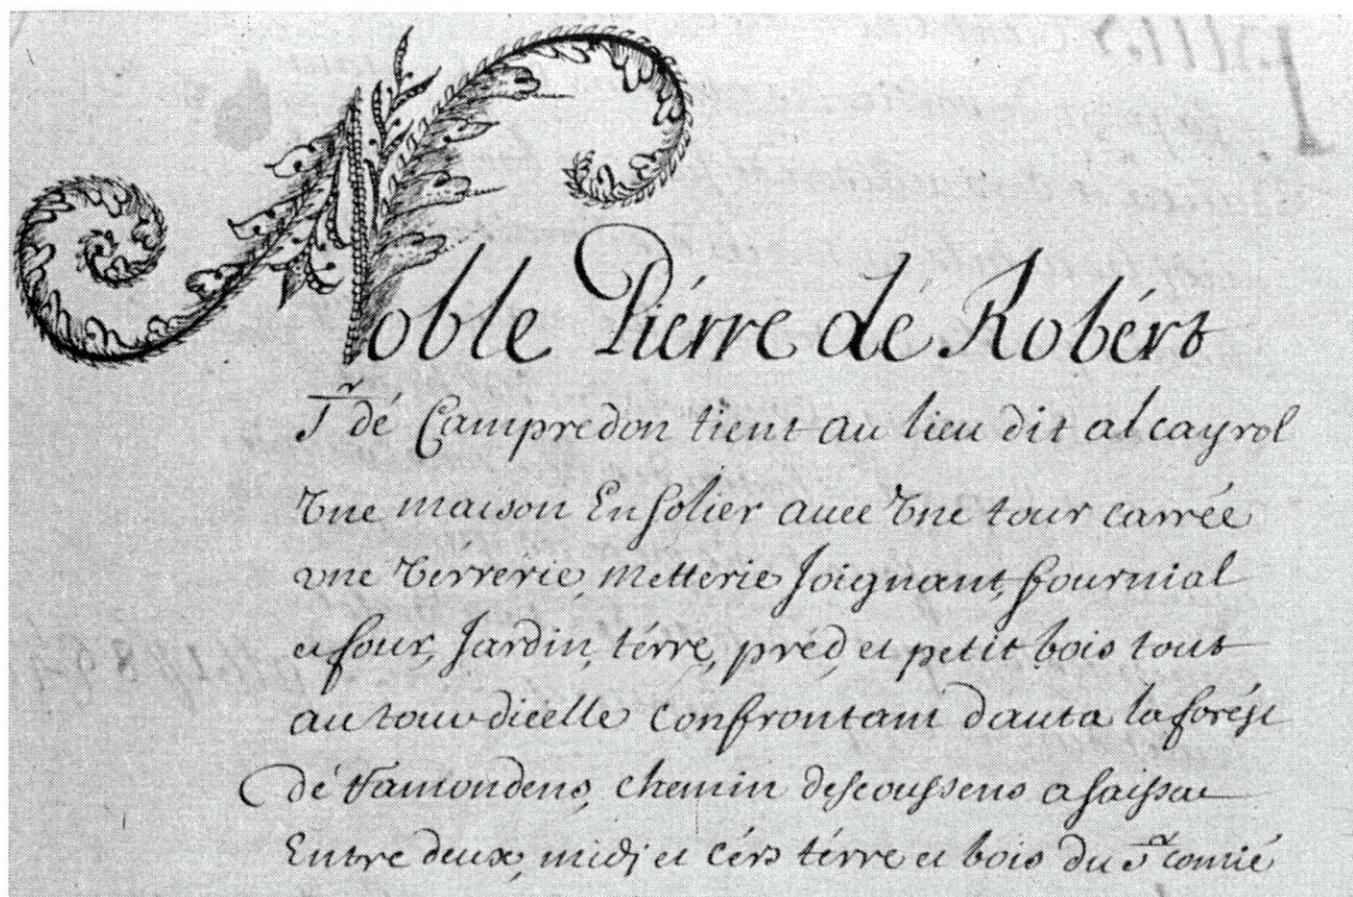 Noble Piérre dé Robért
Sr dé Campredon tient au lieu dit al cayrol
Vne maison En solier auec Vne tour carrée
vne Verrerie, metterie Joignant, fournial
et four, Jardin, térre, préd, et petit bois tout
autour dicelle confrontant dauta la forést
dé Hamondens, chemin descoussens a saissac
Entre deux, midj et cérs térre et bois du Sr